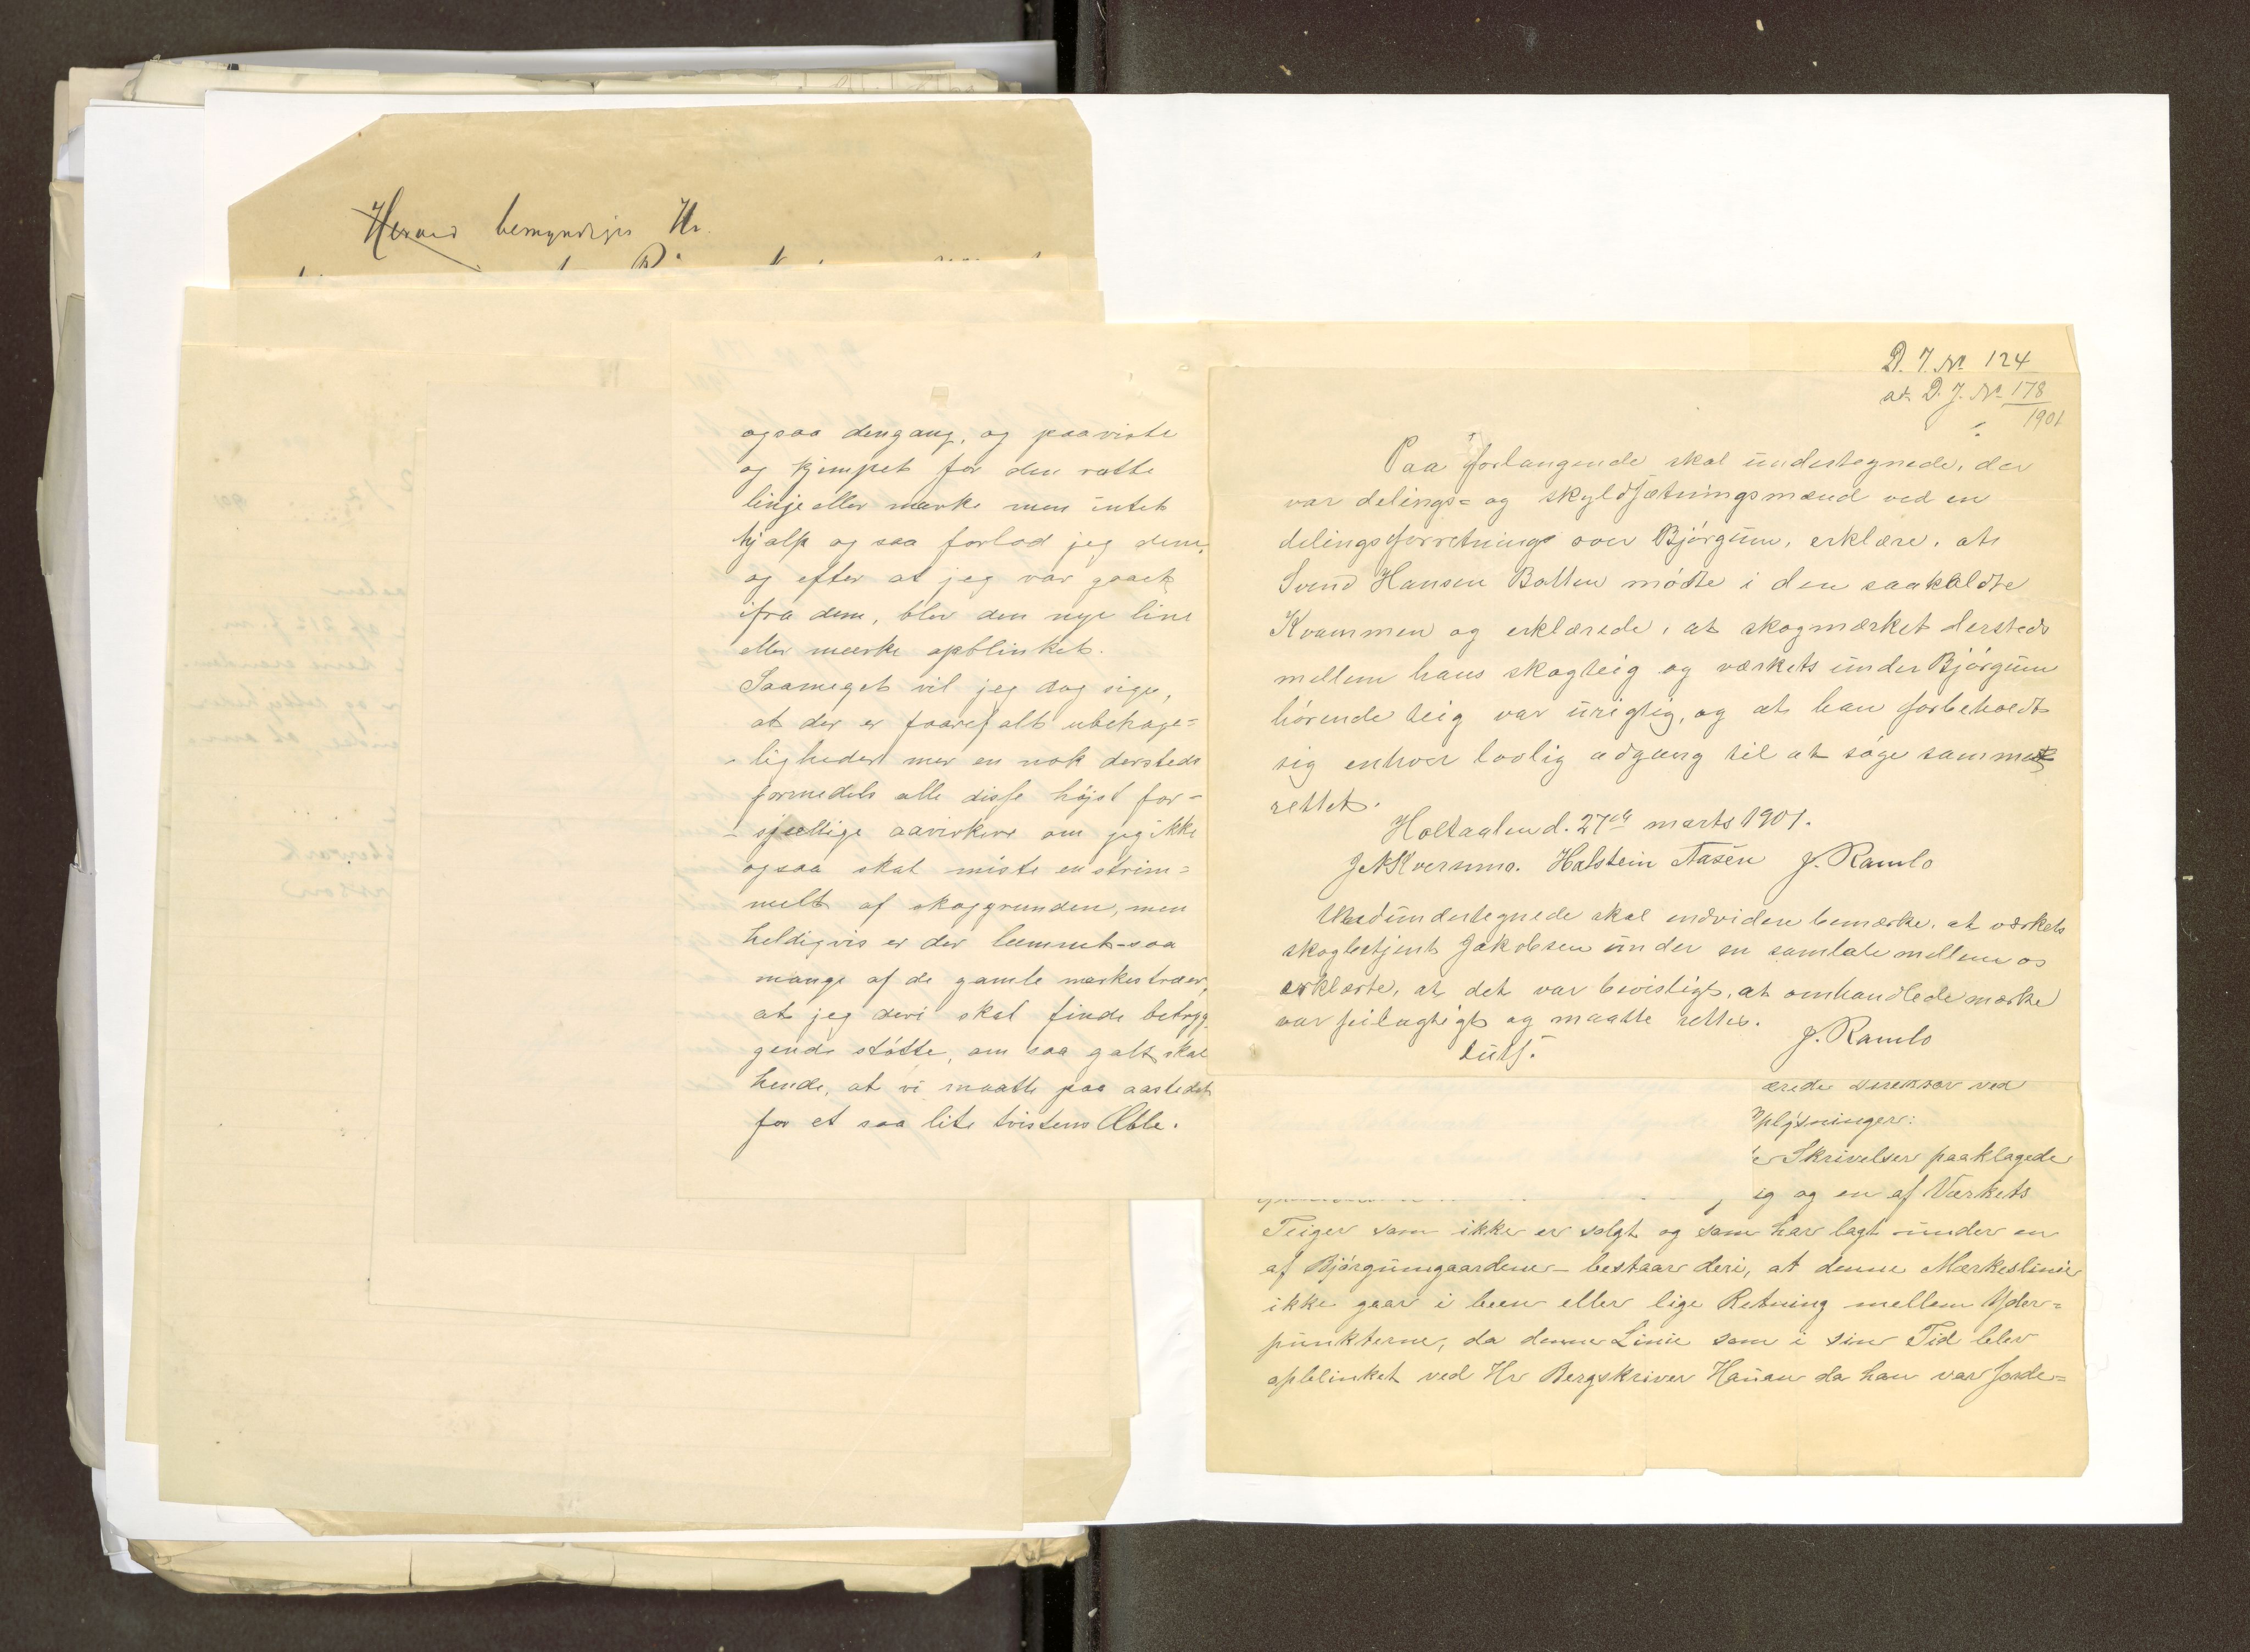 Herved bemyndiges Hr.
ogsaa dengang, og paaviste
og kjempet for den rette
linje eller merke men intet
hjalp og saa forlod jeg dem,
og efter at jeg var gaaet
ifra dem, blev den nye line
eller merke opblinket.
Saameget vil jeg dog sige,
at der er foarefalt ubehage=
- ligheder mer en nok dersteds
formedels alle disse højst for-
- sjellige aavirkere om jeg ikke
ogsaa skal miste en strim=
melt af skoggrunden, men
heldigvis er der lemnet saa
mange af de gamle merkestræer,
at jeg deri skal finde betryg
gende støtte, om saa galt skal
hende, at vi maatte paa aastedet
for et saa lite tvistens Æble.
D. J. No 124
at D. J. No 178
1901
Paa forlangende skal undertegnede, der
var delings= og skyldsætningsmænd ved en
delingsforretning over Bjørgum, erklære, at
Svend Hansen Botten mødte i den saakaldte
Kvammen og erklærede, at skogmærket dersteds
mellem hans skogteig og værkets under Bjørgum
hørende teig var urigtig, og at han forbeholdt
sig enhver lovlig adgang til at søge sammet
rettet.
Holtaalen d. 27de marts 1901.
J. N. Kversmo. Halstein Aasen J. Ramlo
Medundertegnede skal endvidere bemærke, at værkets
skogbetjent Jakobsen under en samtale mellem os
erklærte, at det var bevisligt, at omhandlede mærke
var feilagtigt og maatte rettes.
J. Ramlo
ærede Direktør ved
plysninger:
e Skrivelser paaklagede
ig og en af Værkets
Teiger som ikke er solgt og som har lagt under en
af Bjørgumgaardene - bestaar deri, at denne Mærkeslinie
ikke gaar i been eller lige Retning mellem Yder=
punkterne, da denne Linie som i sin Tid blev
opblinket ved Hr Bergskriver Hauan da han var forde=